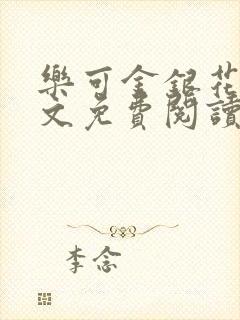 樂可金銀花
文免費閱讀
李念